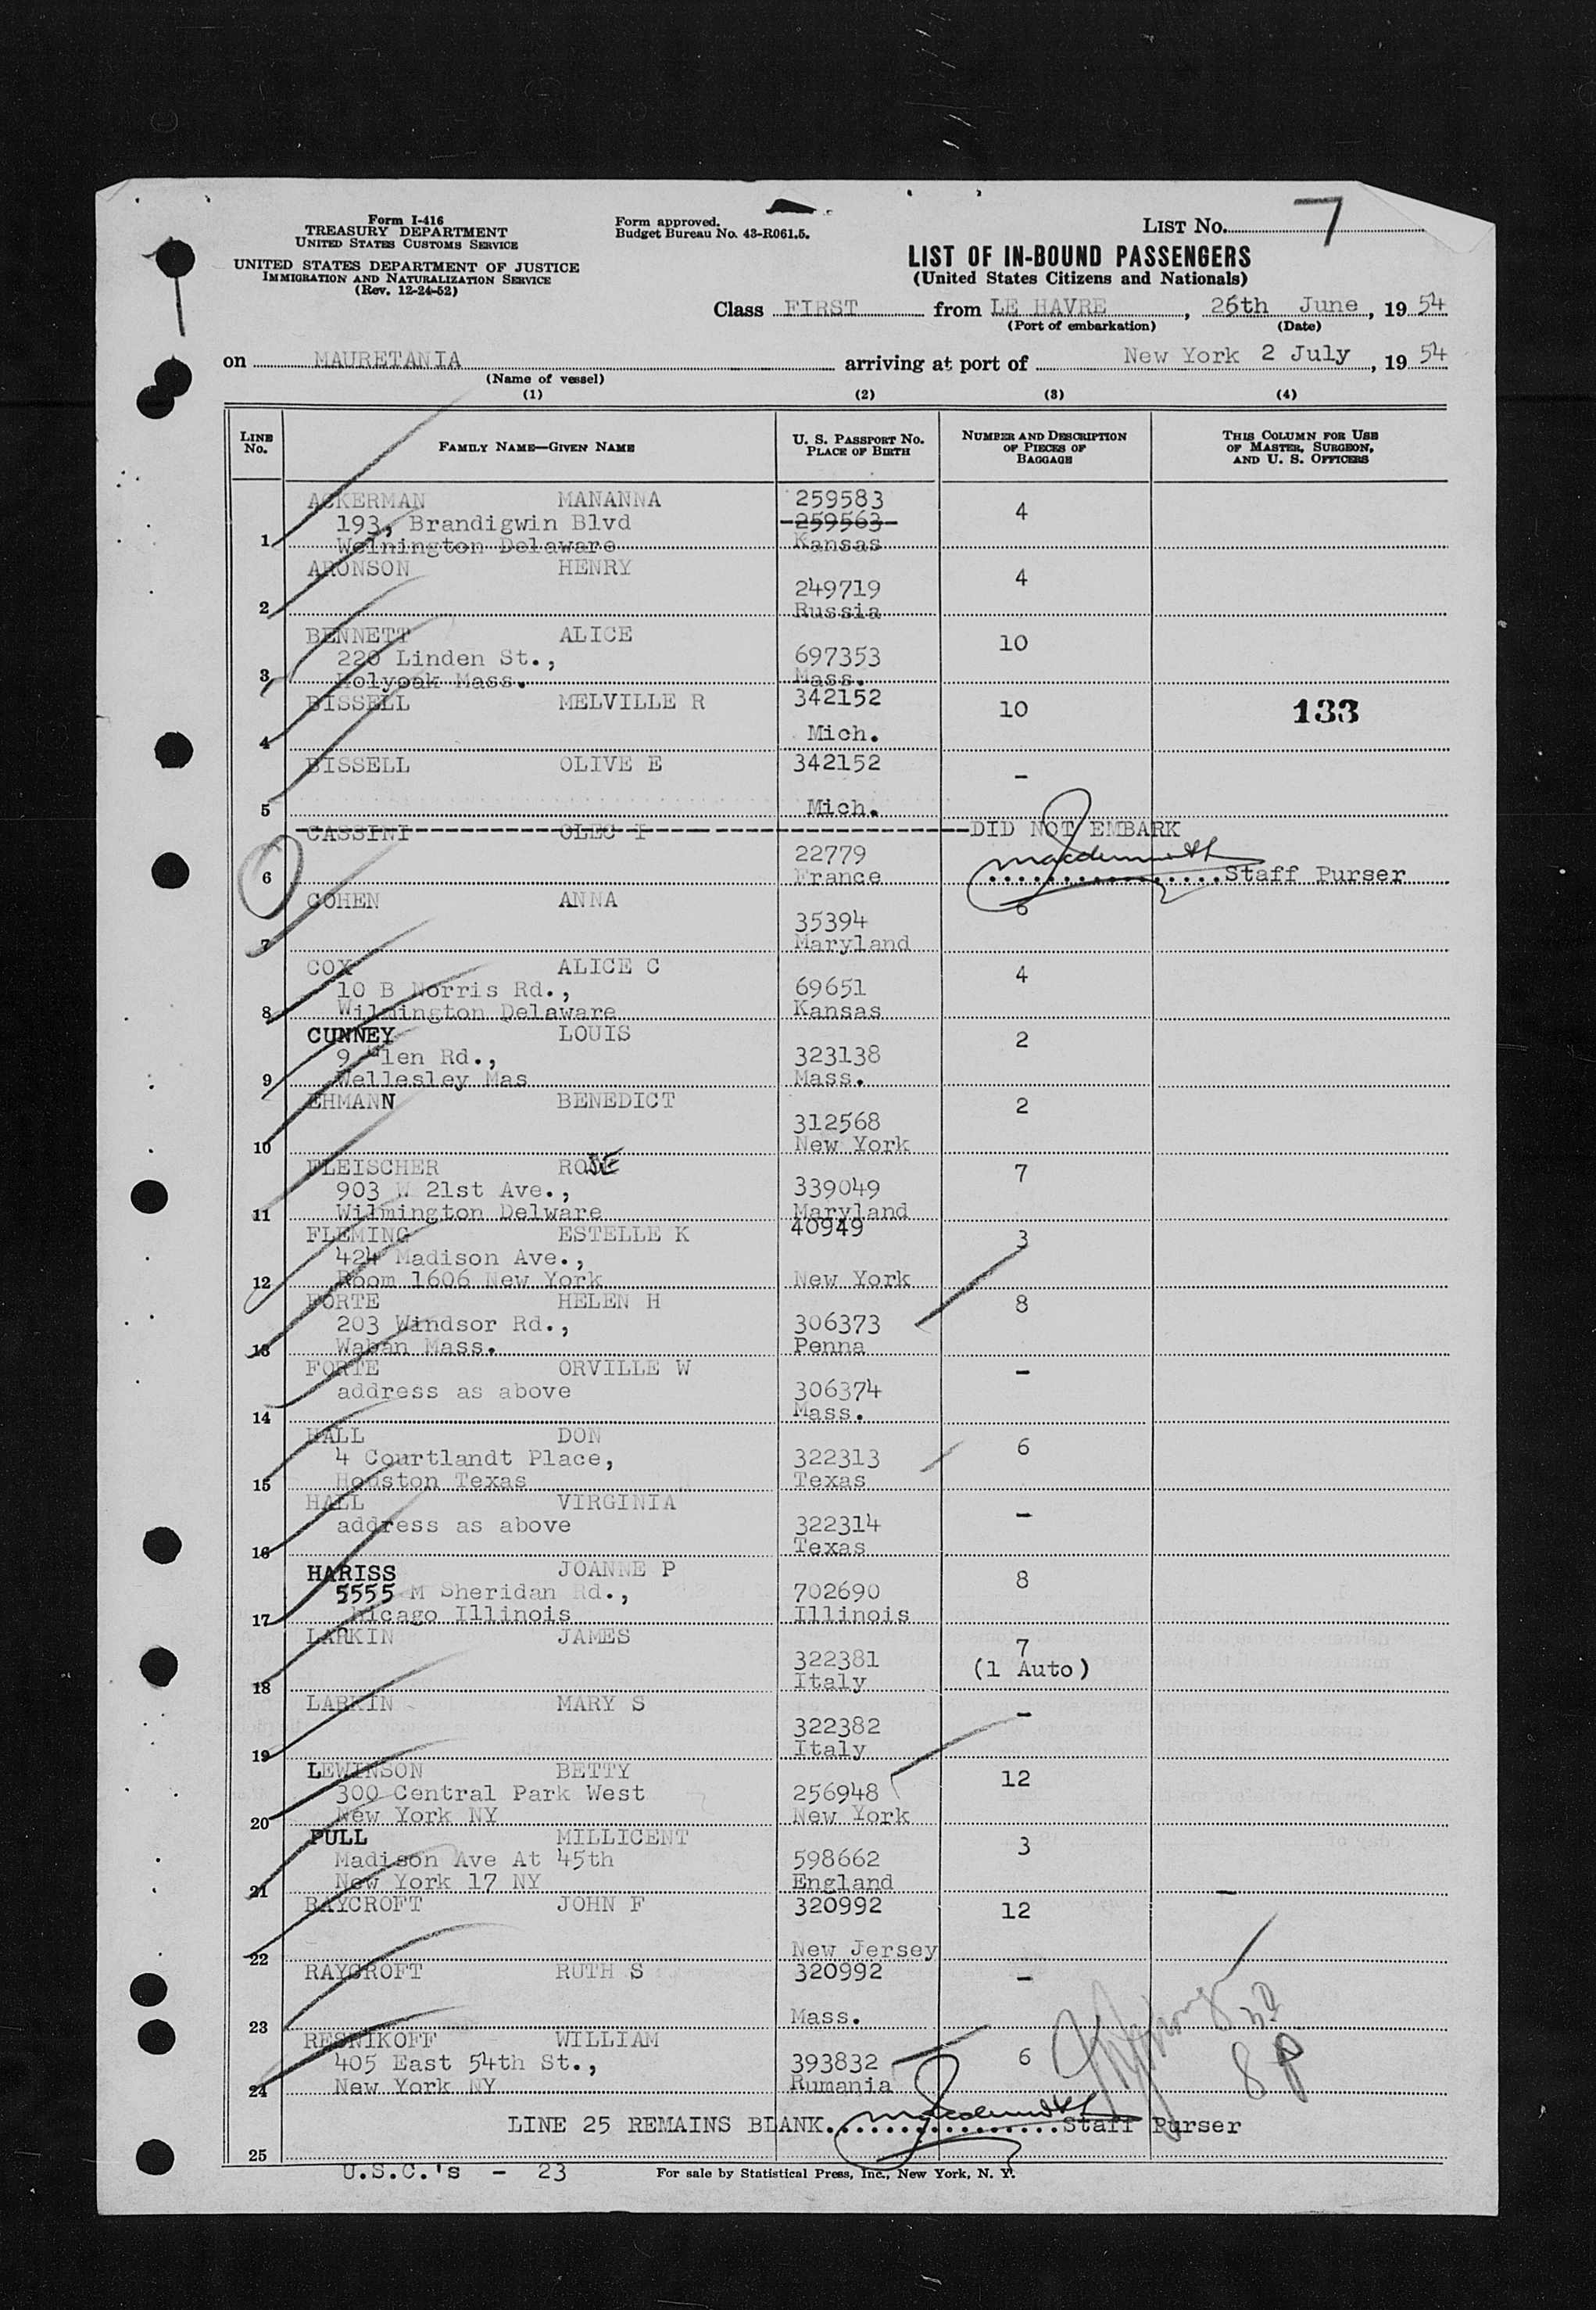 Form I-416
TREASURY DEPARTMENT
UNITED STATES CUSTOMS SERVICE
UNITED STATES DEPARTMENT OF JUSTICE
IMMIGRATION AND NATURALIZATION SERVICE
(Rev. 12-24-52)
Form approved.
Budget Bureau No. 43-R061.5.
LIST No. 7
LIST OF IN-BOUND PASSENGERS
(United States Citizens and Nationals)
Class FIRST from LE HAVRE, 26th June, 1954
(Port of embarkation) (Date)
on MAURETANIA arriving at port of New York 2 July, 1954
(Name of vessel)
(1) (2) (3) (4)
LINE No. FAMILY NAME—GIVEN NAME U. S. PASSPORT No. PLACE OF BIRTH NUMBER AND DESCRIPTION OF PIECES OF BAGGAGE THIS COLUMN FOR USE OF MASTER, SURGEON, AND U. S. OFFICERS
ACKERMAN MANANNA 259583 4
193, Brandigwin Blvd 259563
1 Welnington Delaware Kansas
ARONSON HENRY 4
249719
2 Russia
BENNETT ALICE 10
220 Linden St., 697353
3 Holyoak Mass. Mass.
BISSELL MELVILLE R 342152 10 133
4 Mich.
BISSELL OLIVE E 342152 -
5 Mich.
CASSINI OLEG I DID NOT EMBARK
22779
6 France Staff Purser
COHEN ANNA 6
35394
7 Maryland
COX ALICE C 4
10 B Norris Rd., 69651
8 Wilmington Delaware Kansas
CUNNEY LOUIS 2
9 Glen Rd., 323138
9 Wellesley Mas Mass.
EHMANN BENEDICT 2
312568
10 New York
FLEISCHER ROSE 7
903 W 21st Ave., 339049
11 Wilmington Delware Maryland
FLEMING ESTELLE K 40949 3
424 Madison Ave.,
12 Room 1606 New York New York
FORTE HELEN H 8
203 Windsor Rd., 306373
13 Waban Mass. Penna
FORTE ORVILLE W -
address as above 306374
14 Mass.
HALL DON 6
4 Courtlandt Place, 322313
15 Houston Texas Texas
HALL VIRGINIA -
address as above 322314
16 Texas
HARISS JOANNE P 8
5555 M Sheridan Rd., 702690
17 hicago Illinois Illinois
LARKIN JAMES 7
322381 (1 Auto)
18 Italy
LARKIN MARY S -
322382
19 Italy
LEWINSON BETTY 12
300 Central Park West 256948
20 New York NY New York
PULL MILLICENT 3
Madison Ave At 45th 598662
21 New York 17 NY England
RAYCROFT JOHN F 320992 12
22 New Jersey
RAYCROFT RUTH S 320992 -
23 Mass.
RESNIKOFF WILLIAM 6
405 East 54th St., 393832 8 P
24 New York NY Rumania
LINE 25 REMAINS BLANK. Staff Purser
25
U.S.C.'s - 23 For sale by Statistical Press, Inc., New York, N. Y.